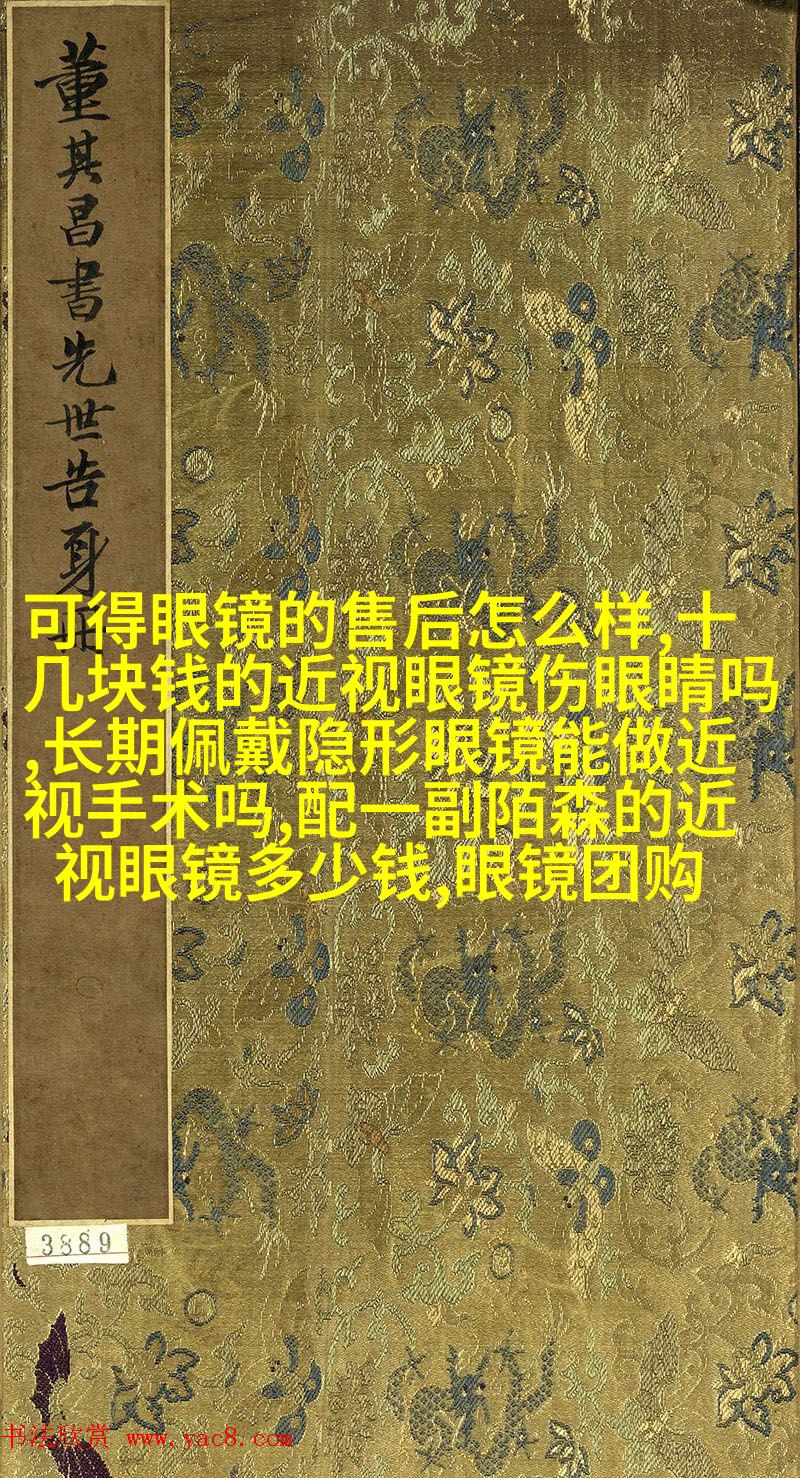 董其昌書先世告身冊
可得眼镜的售后怎么样,十
几块钱的近视眼镜伤眼睛吗
,长期佩戴隐形眼镜能做近
视手术吗,配一副陌森的近
视眼镜多少钱,眼镜团购
3889
书法欣赏 www.yac8.com